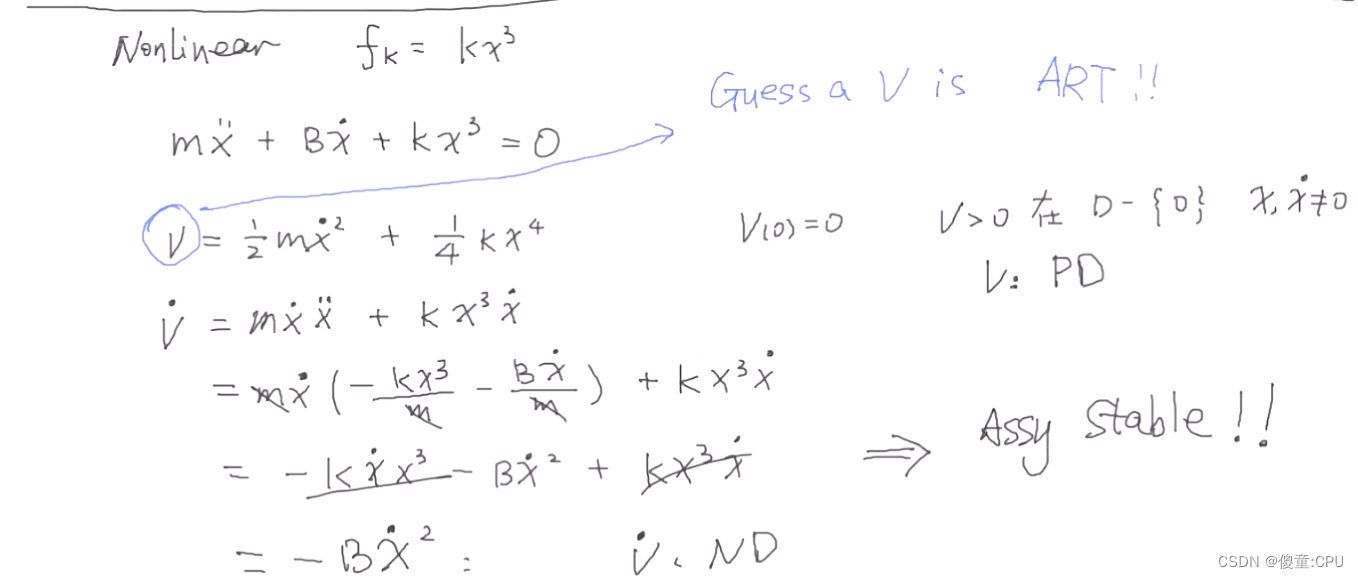 Nonlinear fₖ = kx³
Guess a V is ART!!
mẍ + Bẋ + kx³ = 0
V = ½mẋ² + ¼kx⁴
V(0)=0 V>0 在 D-{0} x,ẋ≠0
V: PD
V̇ = mẋẍ + kx³ẋ
= mẋ(-kx³/m - Bẋ/m) + kx³ẋ
= -kẋx³ - Bẋ² + kx³ẋ
⇒ Assy Stable!!
= -Bẋ² : V̇: ND
CSDN @傻童:CPU